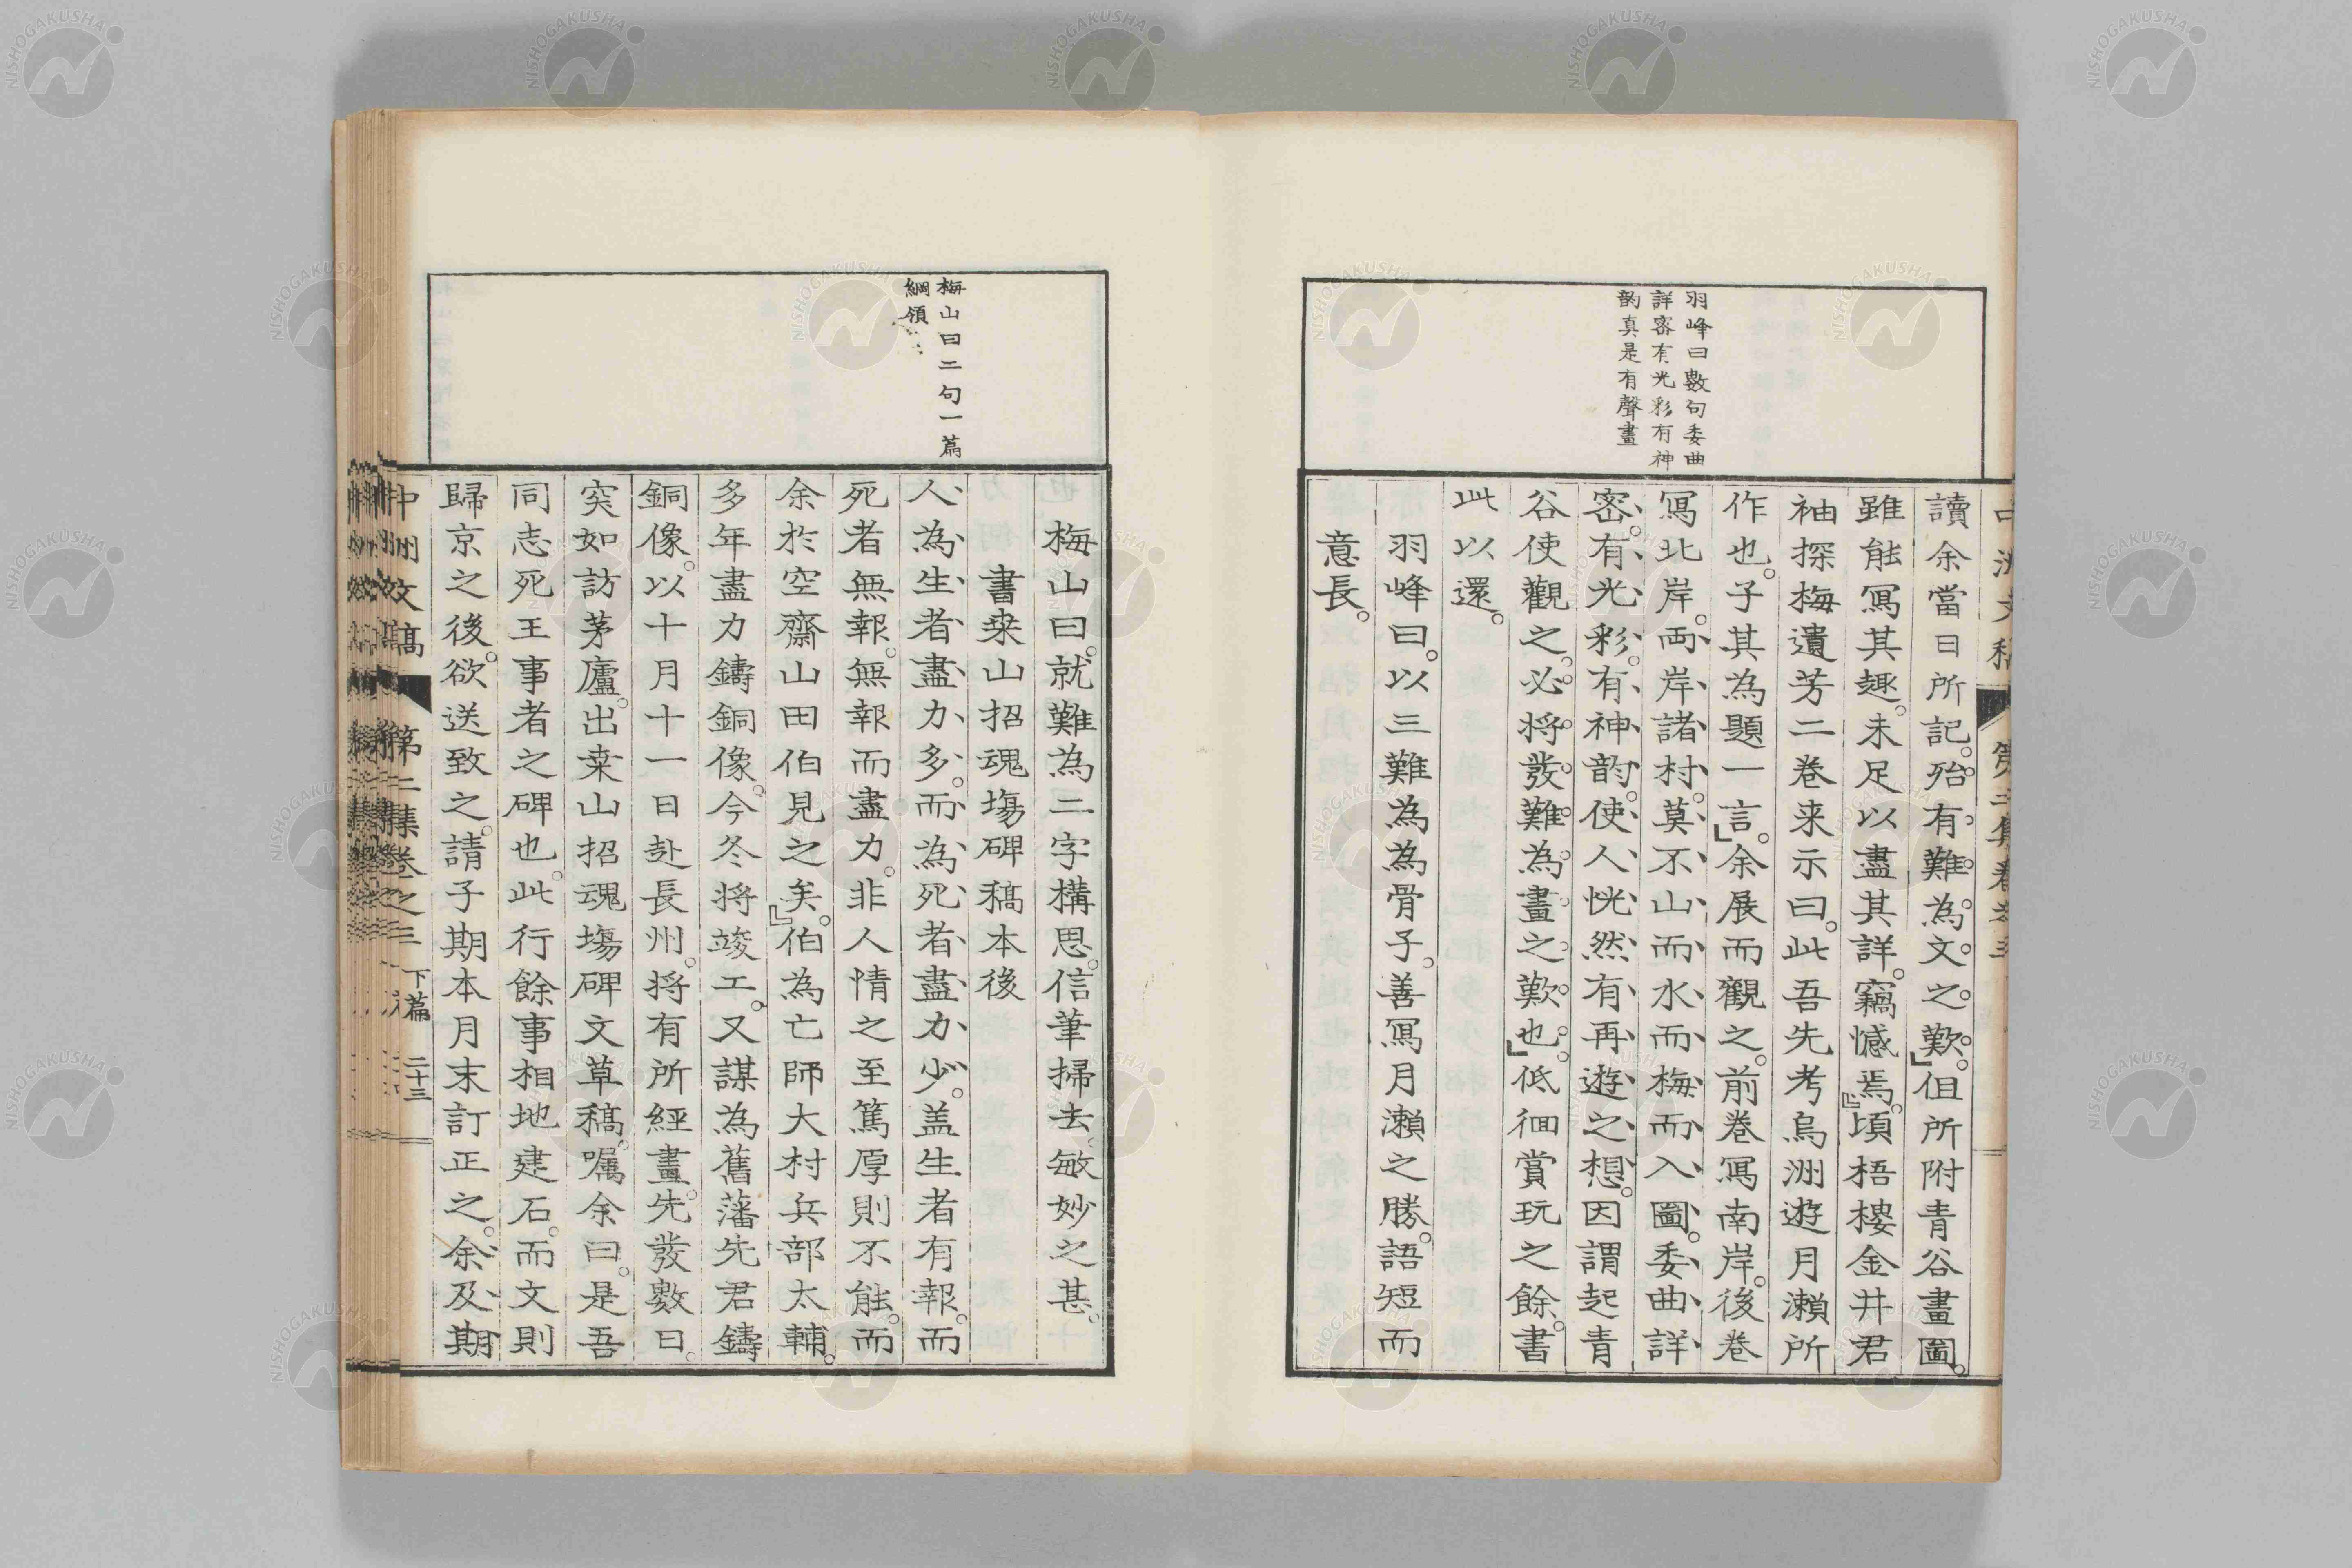 羽峰曰數句委曲
詳密有光彩有神
韵真是有聲畫
讀余當日所記。殆有難為文之歎。』但所附青谷畫圖。
雖能寫其趣。未足以盡其詳。竊憾焉。』頃梧樓金井君
袖探梅遺芳二卷来示曰。此吾先考烏洲遊月瀨所
作也。子其為題一言。』余展而觀之。前卷寫南岸。後卷
寫北岸。両岸諸村。莫不山而水而梅而入圖。委曲詳
密。有光彩。有神韵。使人恍然有再遊之想。因謂起青
谷使觀之。必将發難為畫之歎也。』低徊賞玩之餘。書
此以還。
羽峰曰。以三難為為骨子。善寫月瀨之勝。語短而
意長。
梅山曰二句一篇
綱領
梅山曰。就難為二字構思。信筆掃去。敏妙之甚。
書桒山招魂塲碑稿本後
人為生者盡力多。而為死者盡力少。盖生者有報。而
死者無報。無報而盡力。非人情之至篤厚則不能。而
余於空齋山田伯見之矣。』伯為亡師大村兵部太輔。
多年盡力鑄銅像。今冬将竣工。又謀為舊藩先君鑄
銅像。以十月十一日赴長州。将有所經畫。先發數日。
突如訪茅廬。出桒山招魂塲碑文草稿。嘱余曰。是吾
同志死王事者之碑也。此行餘事相地建石。而文則
歸京之後。欲送致之。請子期本月末訂正之。余及期
中洲文稿 第二集卷之三 下篇 二十三